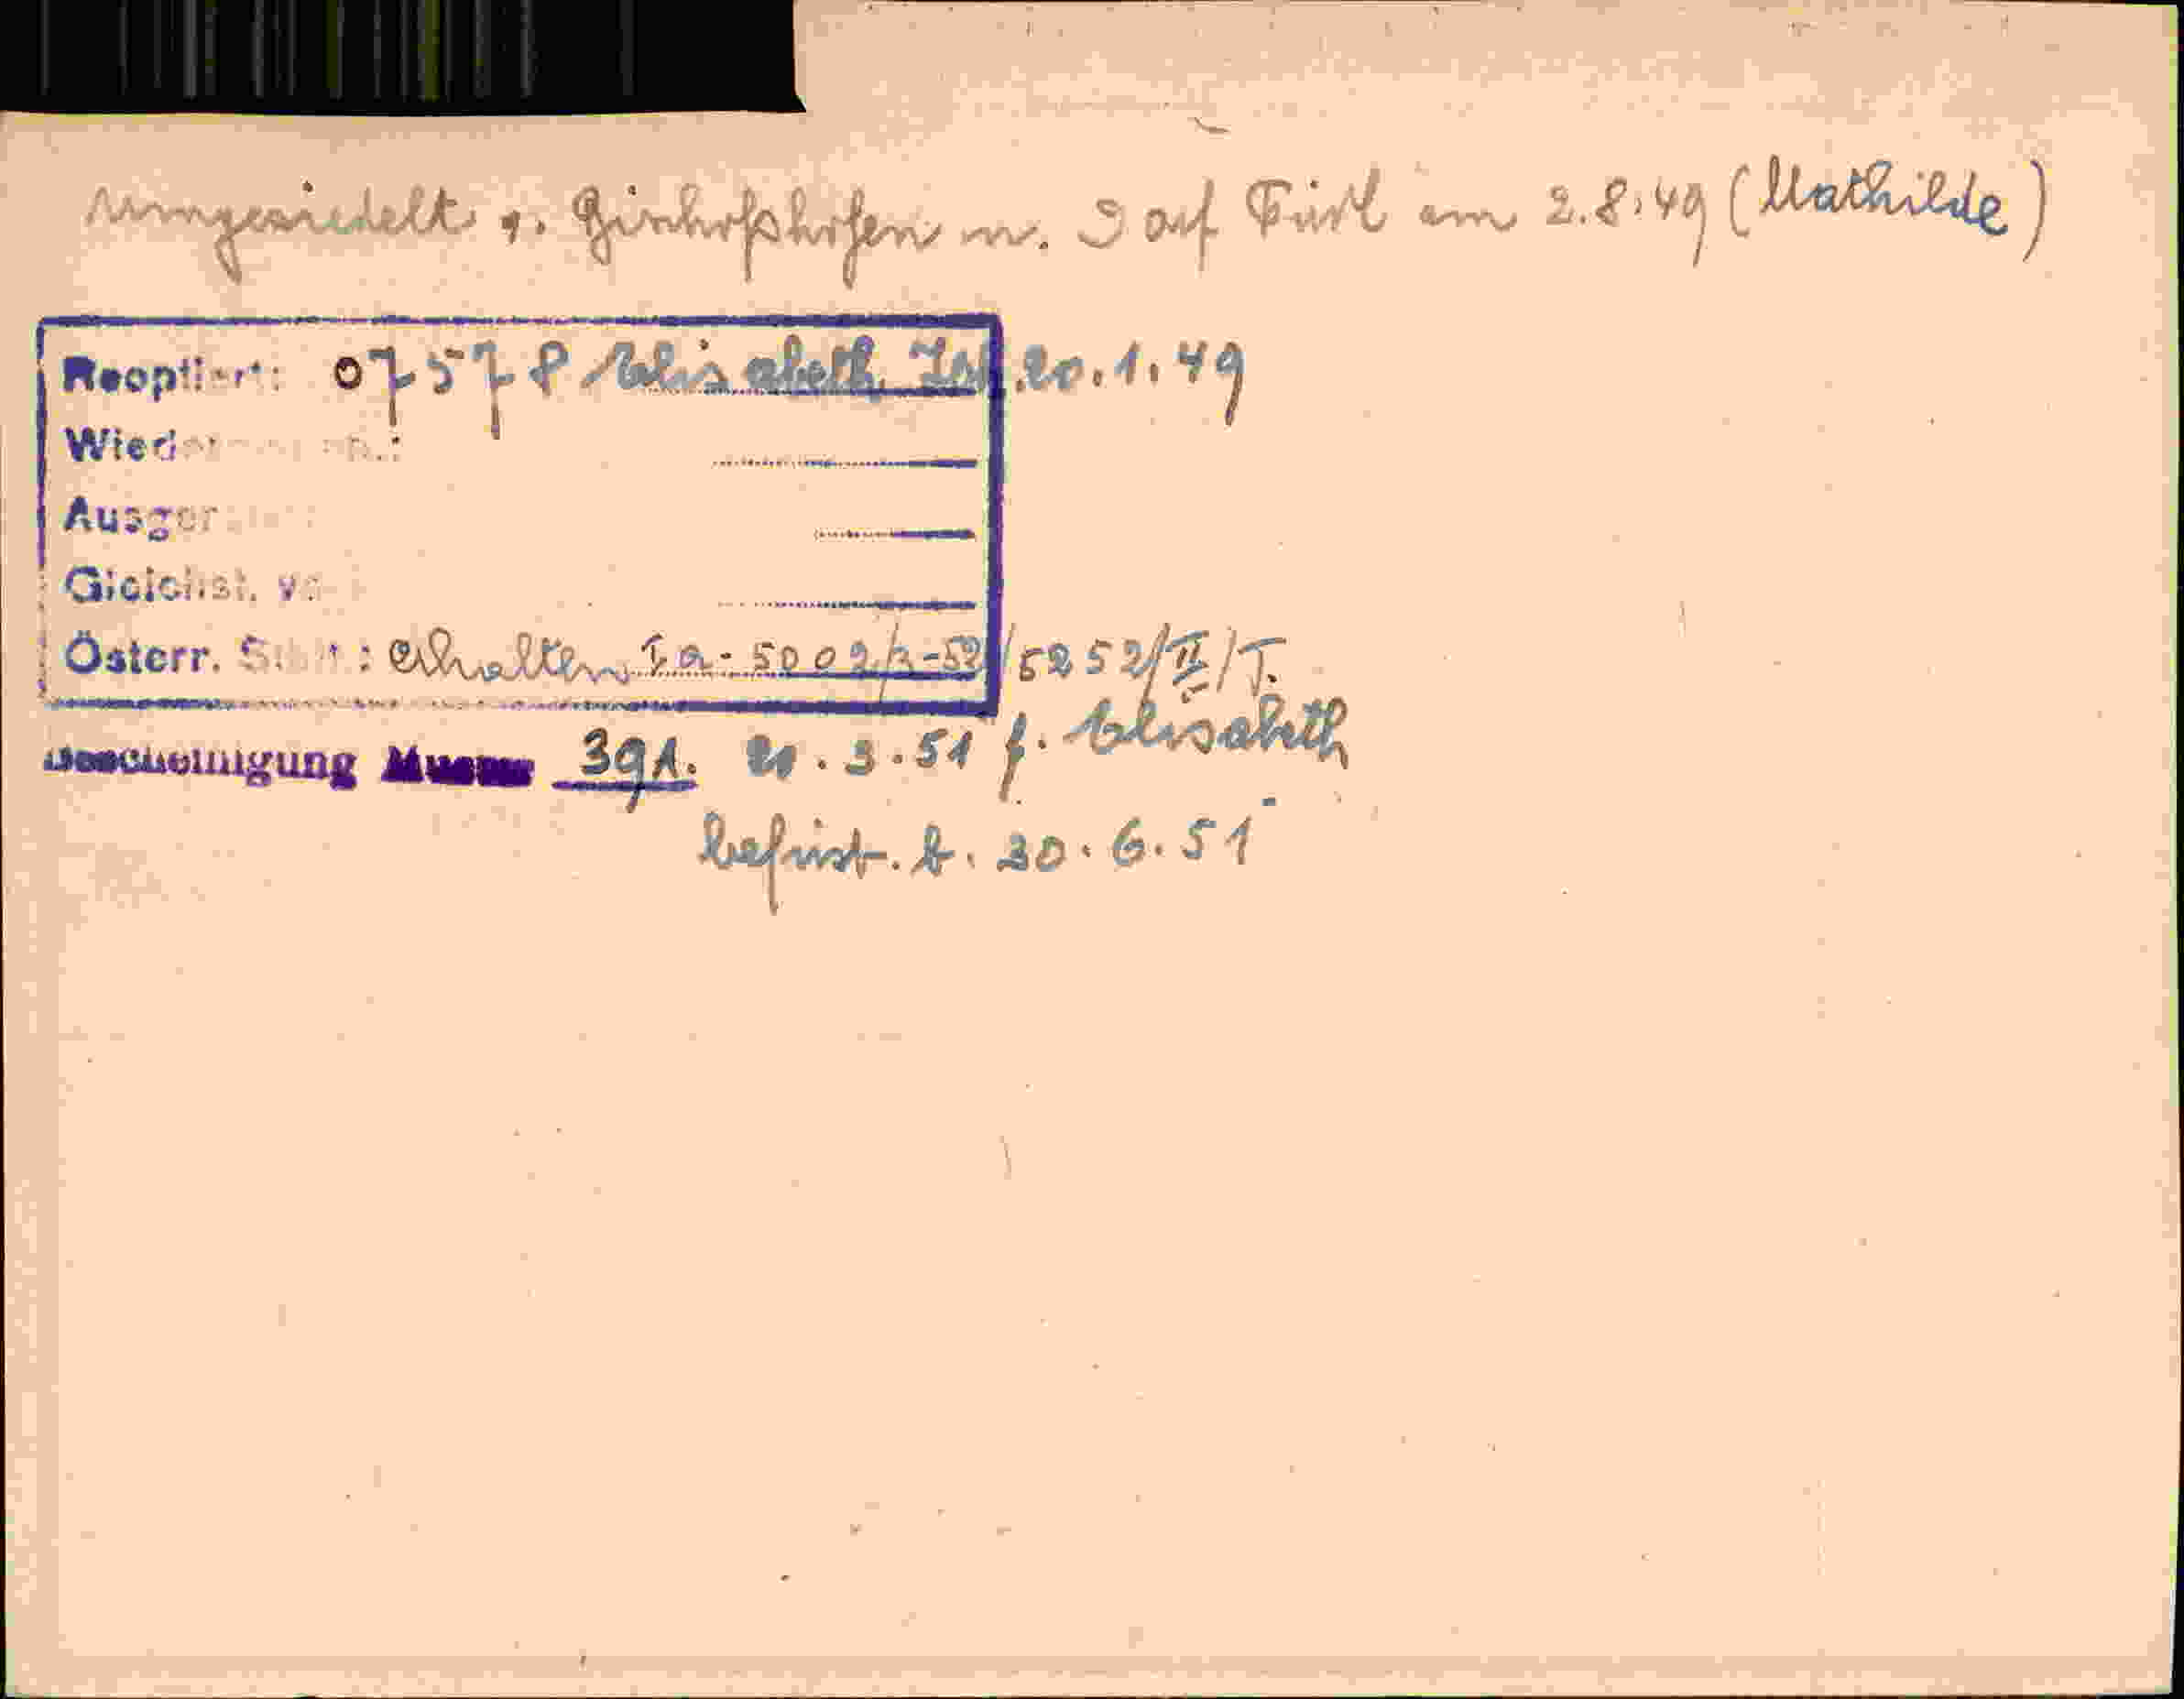 umgesiedelt v. Bischofshofen n. Dorf Tirol am 2.8.49 (Mathilde)
Reoptiert: 07578 Elisabeth, 20.1.49
Österr. : erhalten Ia-5002/2-52/5252/II/T.
Bescheinigung Muster 391. 20.3.51 f. Elisabeth
befrist. b. 30.6.51